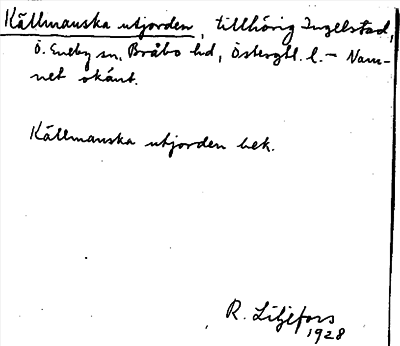 Källmanska utjorden, tillhörig Ingelstad,
Ö. Eneby sn, Bråbo hd, Östergtl. l. – Nam-
net okänt.
Källmanska utjorden bek.
R. Liljefors
1928